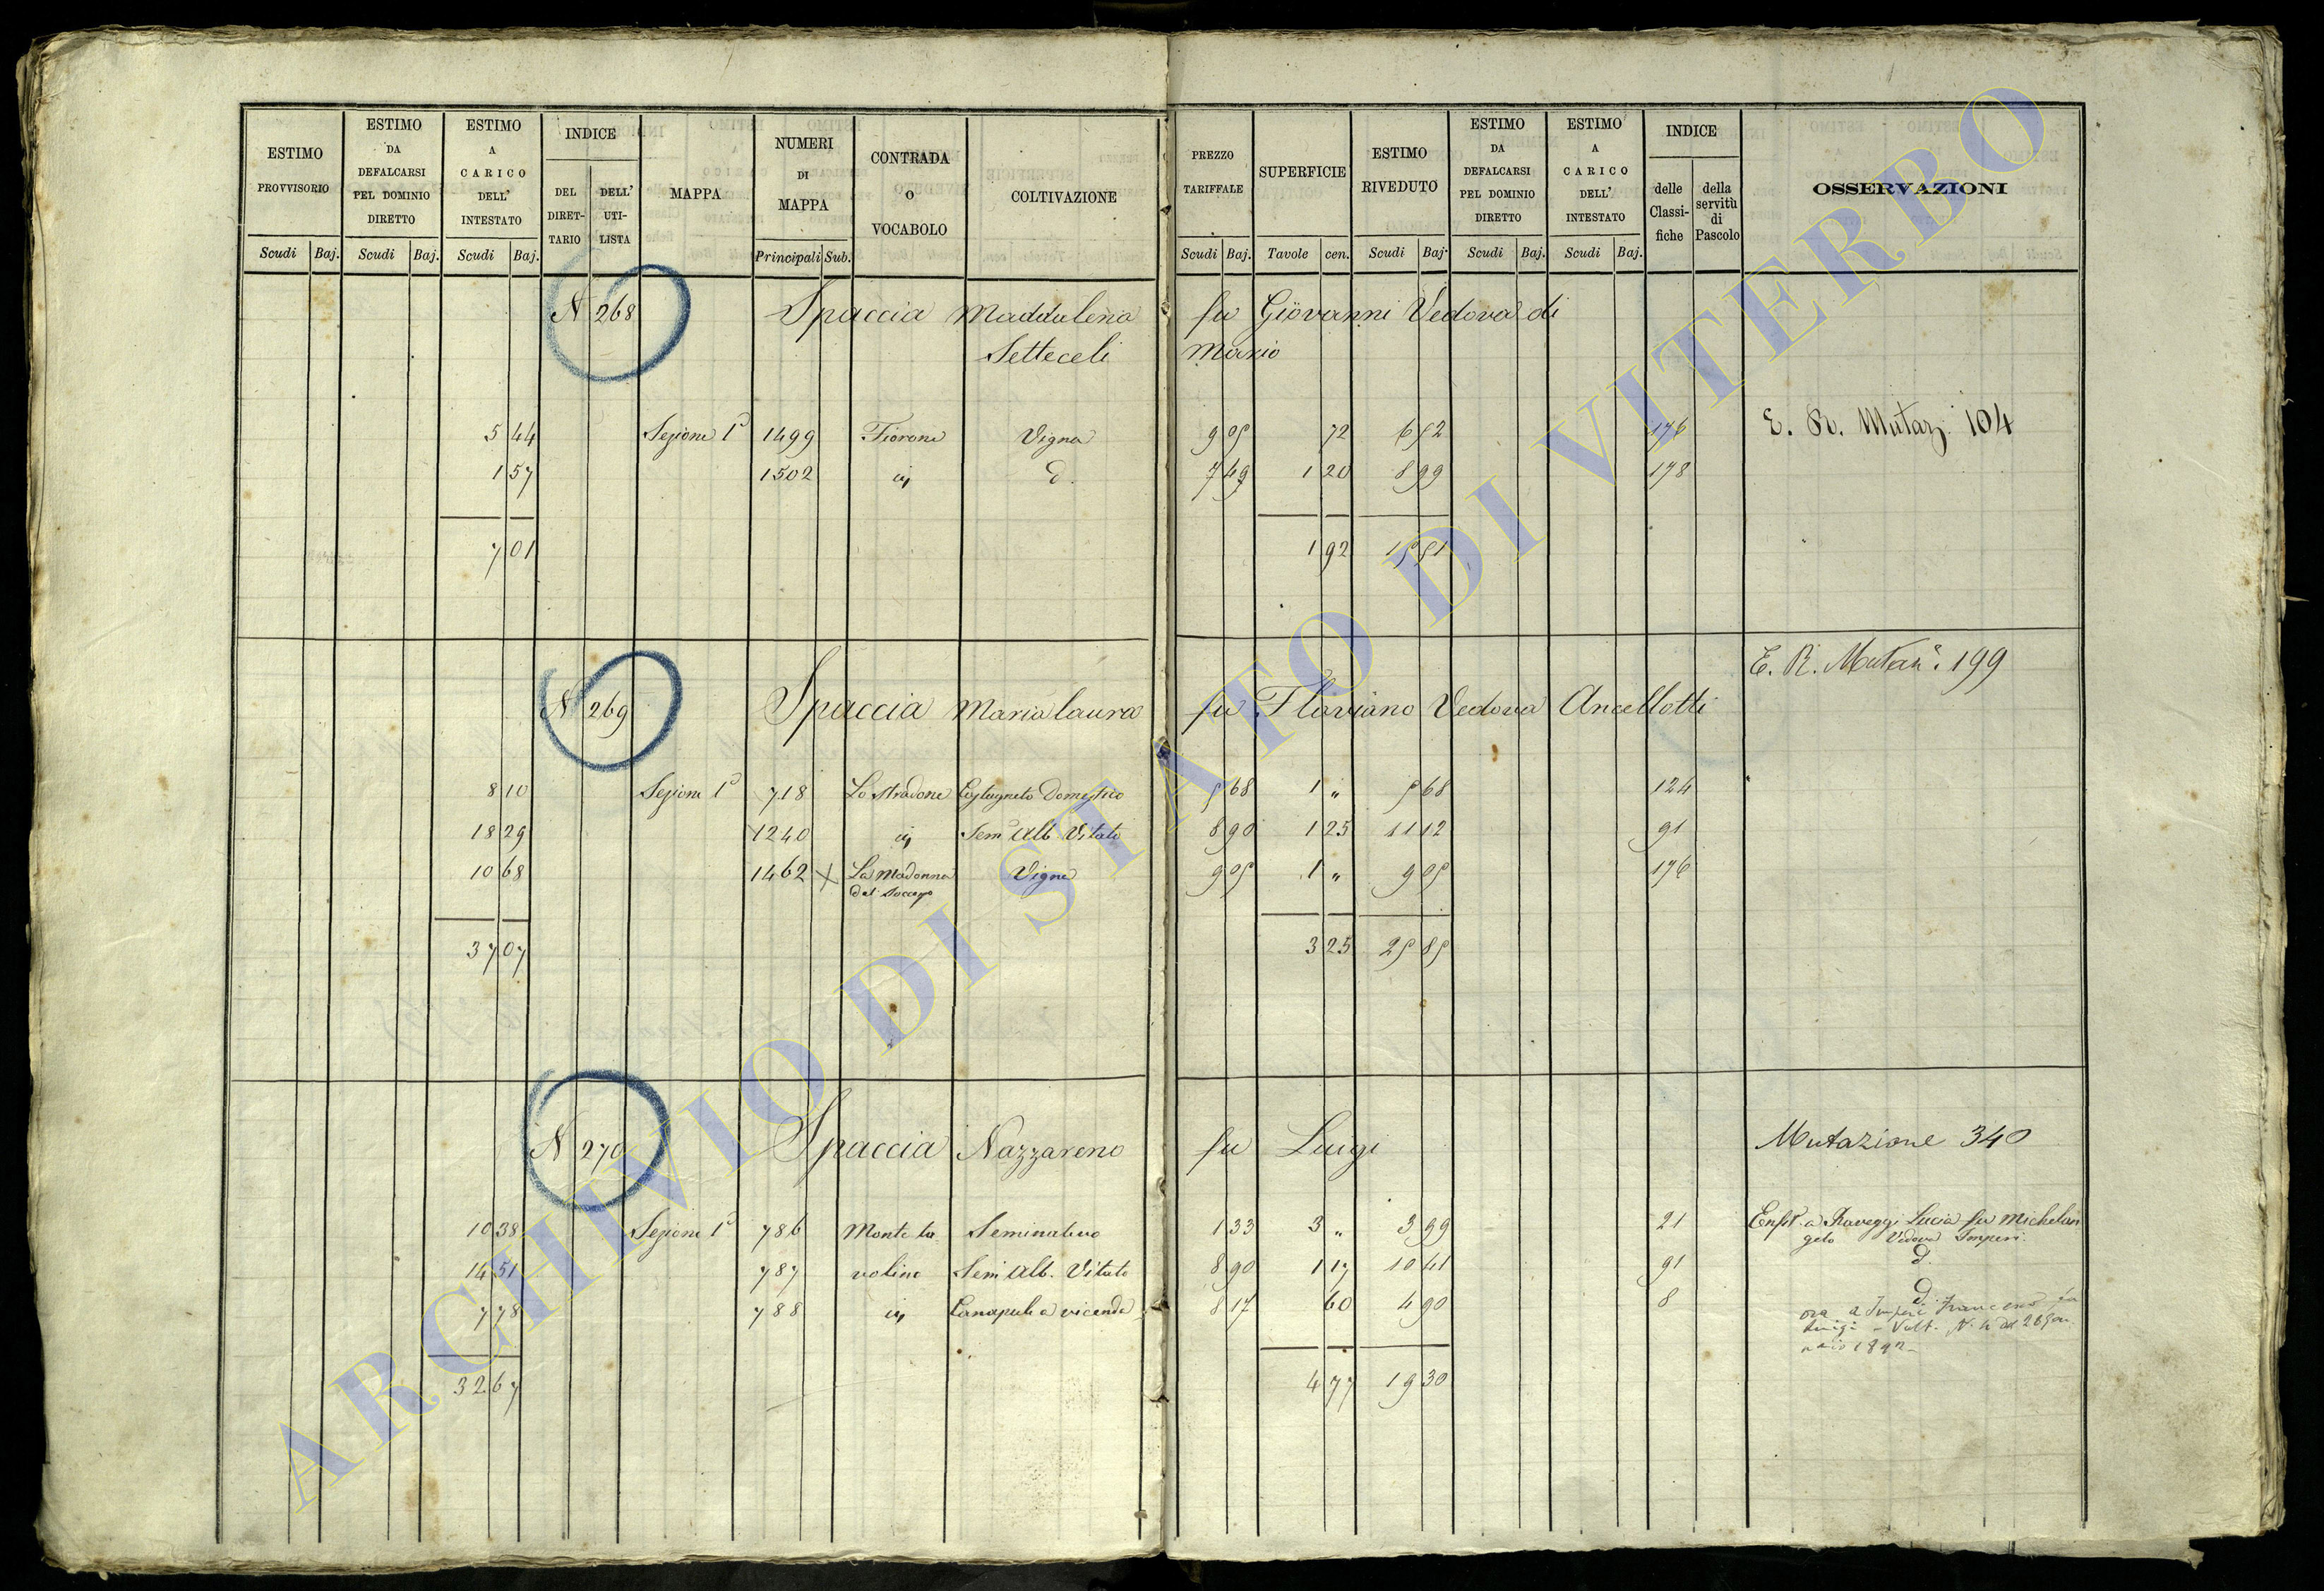 ESTIMO PROVVISORIO Scudi Baj.
ESTIMO DA DEFALCARSI PEL DOMINIO DIRETTO Scudi Baj.
ESTIMO A CARICO DELL' INTESTATO Scudi Baj.
INDICE DEL DIRET-TARIO DELL' UTI-LISTA
MAPPA
NUMERI DI MAPPA Principali Sub.
CONTRADA O VOCABOLO
COLTIVAZIONE
PREZZO TARIFFALE Scudi Baj.
SUPERFICIE Tavole cen.
ESTIMO RIVEDUTO Scudi Baj.
ESTIMO DA DEFALCARSI PEL DOMINIO DIRETTO Scudi Baj.
ESTIMO A CARICO DELL' INTESTATO Scudi Baj.
INDICE delle Classi-fiche della servitù di Pascolo
OSSERVAZIONI
N 268 Spaccia Maddalena fu Giovanni Vedova di
Setteceli Mario
5 44 Sezione 1ª 1499 Fiorone Vigna 9 05 72 6 52 176 E. R. Mutaz. 104
1 57 1502 id. 7 49 1 20 8 99 178
7 01 1 92 15 51
E. R. Mutazⁿ. 199
N 269 Spaccia Maria laura fu Flaviano Vedova Ancellotti
8 10 Sezione 1ª 718 Lo Stradone Castagneto Domestico 5 68 1 " 5 68 124
18 29 1240 id. Semᵒ Alb. Vitato 8 90 1 25 11 12 91
10 68 1462 X La Madonna del Soccorso Vigna 9 05 1 " 9 05 176
37 07 3 25 25 85
N 270 Spaccia Nazzareno fu Luigi Mutazione 340
10 38 Sezione 1ª 786 Monte ta- Seminativo 1 33 3 " 3 99 21 Enfit. a Raveggi Lucia fu Michelan
gelo Vedova Imperi
14 51 787 volino Semᵒ Alb. Vitato 8 90 1 17 10 41 91 d.
7 78 788 id. Canapule a vicenda 8 17 60 4 90 8 d.
ora a Imperi Francesco fu
Luigi - Volt. N. 4 del 26 gen
naio 1892
32 67 4 77 19 30
ARCHIVIO DI STATO DI VITERBO